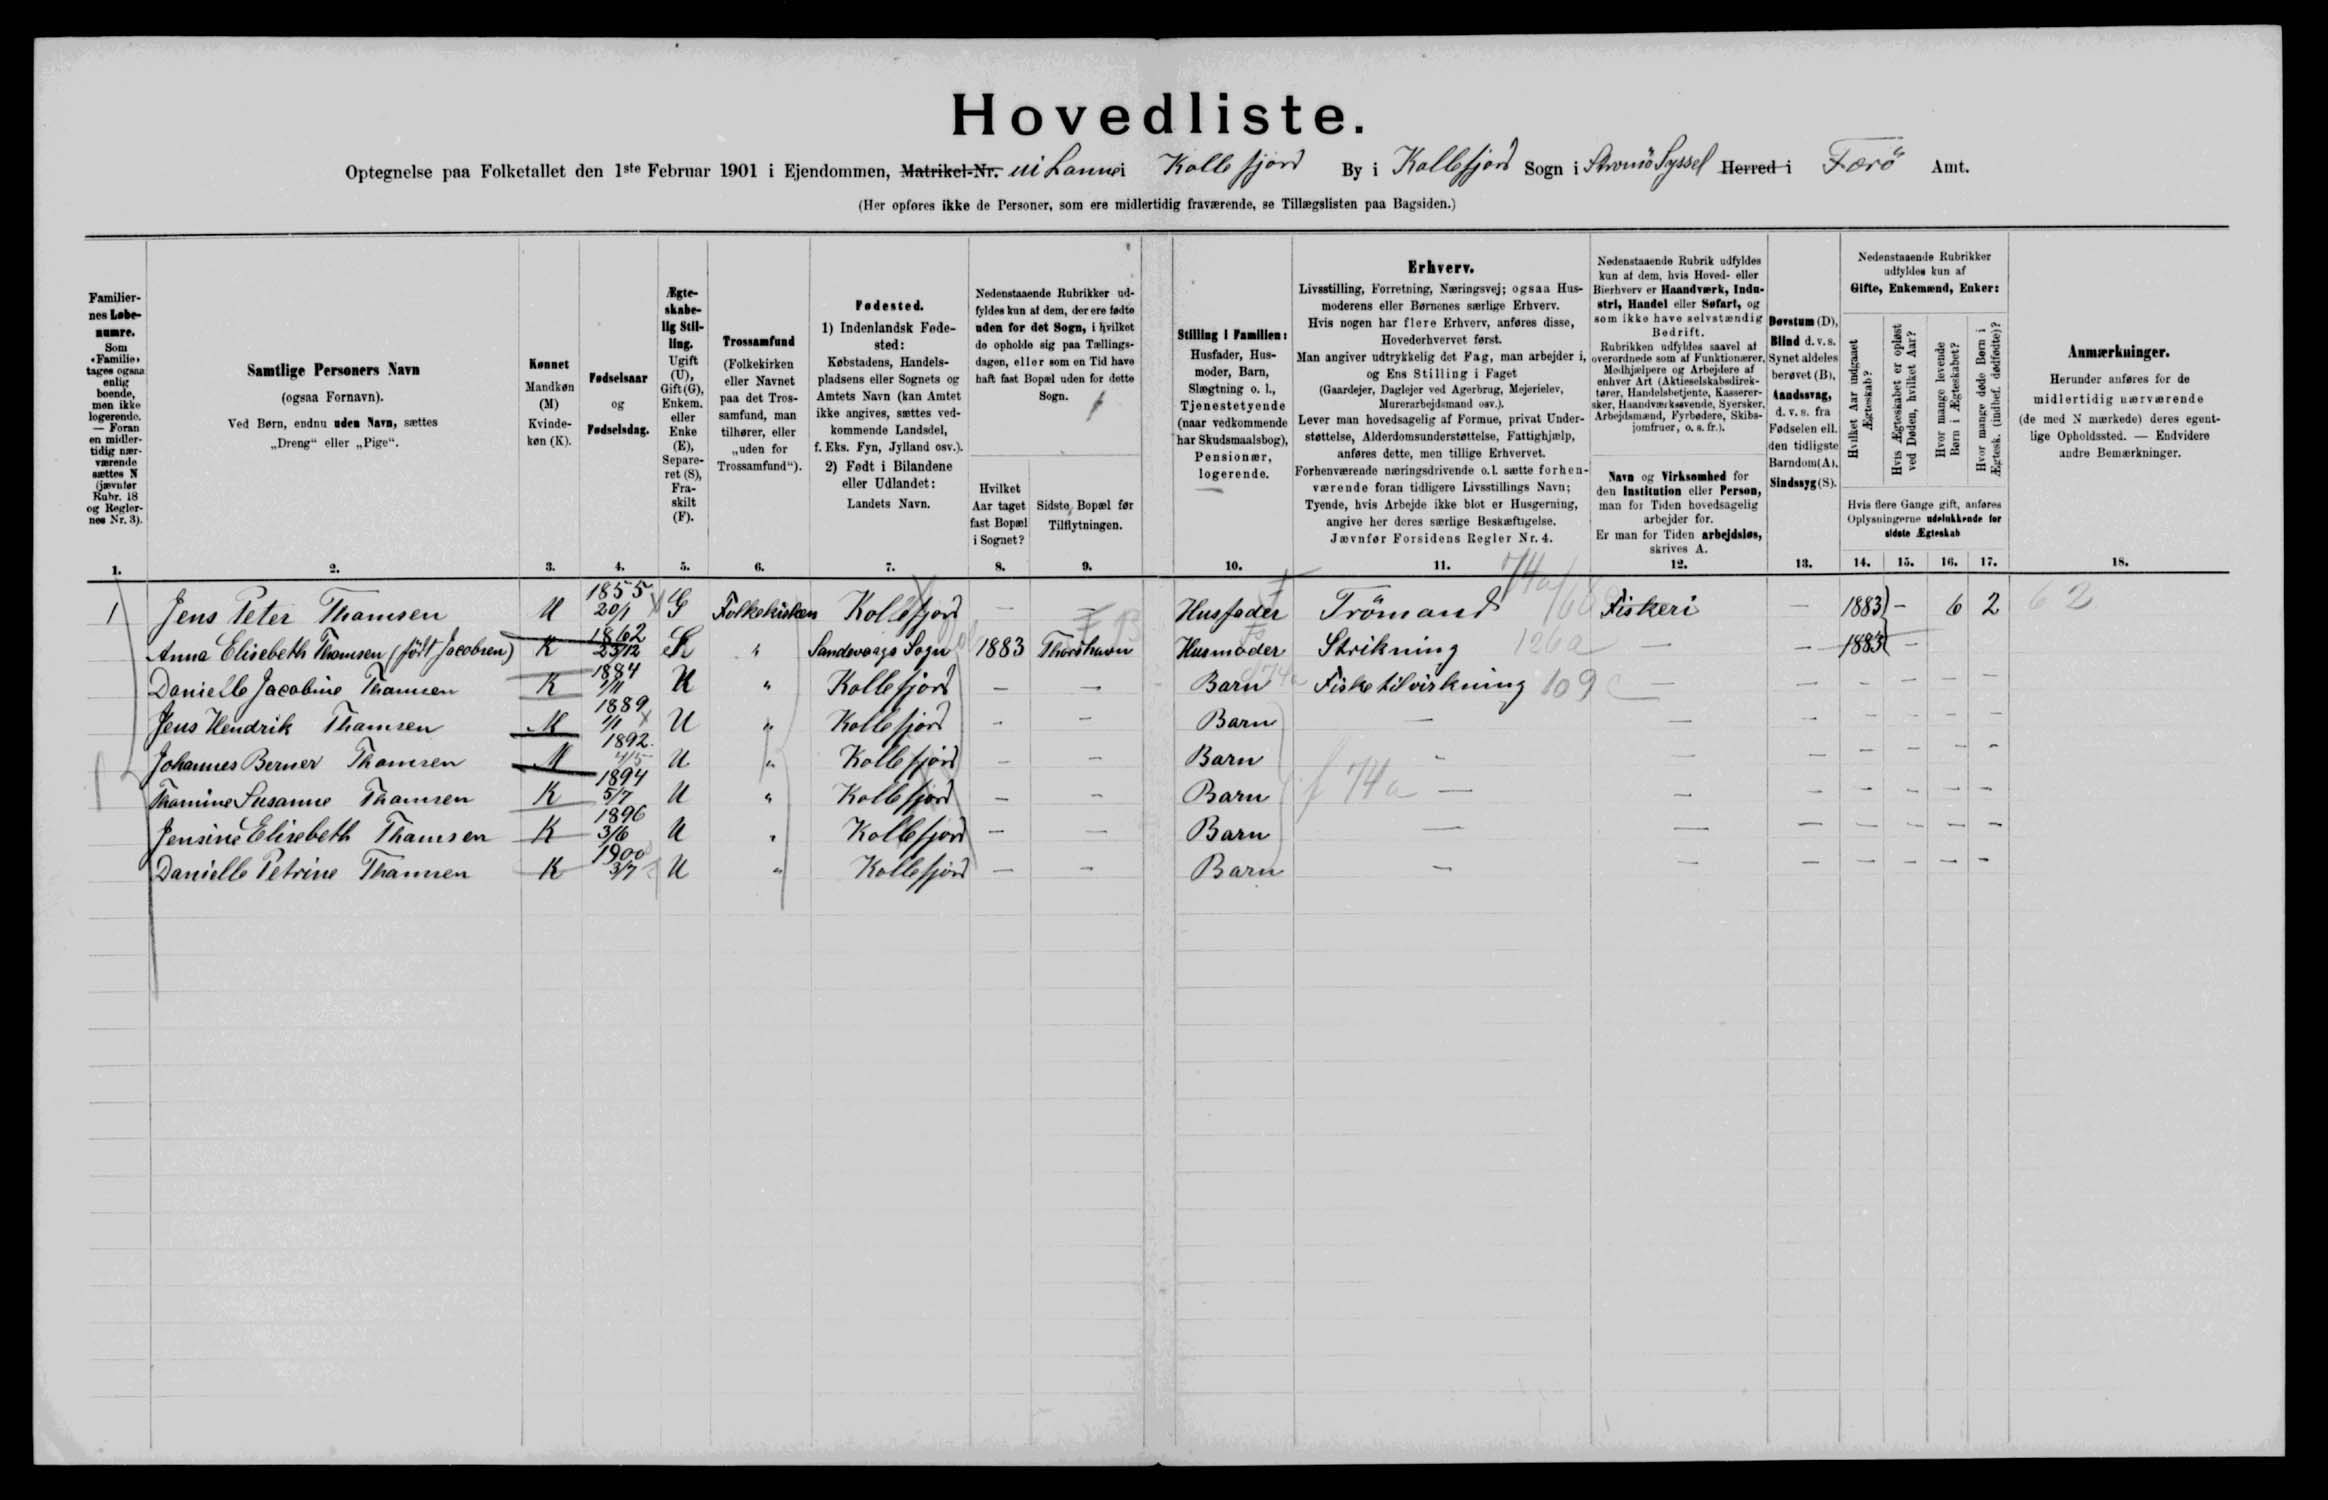 Hovedliste.
Optegnelse paa Folketallet den 1ste Februar 1901 i Ejendommen, Matrikel-Nr. i Kollefjord By i Kollefjord Sogn i Strømö Syssel Herred i Færö Amt.
(Her opføres ikke de Personer, som ere midlertidig fraværende, se Tillægslisten paa Bagsiden.)
Familiernes Løbenumre.
Som «Familie» tages ogsaa enlig boende, men ikke logerende. — Foran en midlertidig nærværende sættes N (jævnfør Rubr. 18 og Reglernes Nr. 3).
Samtlige Personers Navn
(ogsaa Fornavn).
Ved Børn, endnu uden Navn, sættes
„Dreng“ eller „Pige“.
Kønnet
Mandkøn (M)
Kvindekøn (K).
Fødselsaar
og
Fødselsdag.
Ægteskabelig Stilling.
Ugift (U), Gift (G), Enkem. eller Enke (E), Separeret (S), Fraskilt (F).
Trossamfund
(Folkekirken eller Navnet paa det Trossamfund, man tilhører, eller „uden for Trossamfund“).
Fødested.
1) Indenlandsk Fødested:
Købstadens, Handelspladsens eller Sognets og Amtets Navn (kan Amtet ikke angives, sættes vedkommende Landsdel, f. Eks. Fyn, Jylland osv.).
2) Født i Bilandene eller Udlandet:
Landets Navn.
Nedenstaaende Rubrikker udfyldes kun af dem, der ere fødte uden for det Sogn, i hvilket de opholde sig paa Tællingsdagen, eller som en Tid have haft fast Bopæl uden for dette Sogn.
Hvilket Aar taget fast Bopæl i Sognet?
Sidste Bopæl før Tilflytningen.
Stilling i Familien:
Husfader, Husmoder, Barn, Slægtning o. l., Tjenestetyende (naar vedkommende har Skudsmaalsbog), Pensionær, logerende.
Erhverv.
Livsstilling, Forretning, Næringsvej; ogsaa Husmoderens eller Børnenes særlige Erhverv.
Hvis nogen har flere Erhverv, anføres disse, Hovederhvervet først.
Man angiver udtrykkelig det Fag, man arbejder i, og Ens Stilling i Faget
(Gaardejer, Daglejer ved Agerbrug, Mejerielev, Murerarbejdsmand osv.).
Lever man hovedsagelig af Formue, privat Understøttelse, Alderdomsunderstøttelse, Fattighjælp, anføres dette, men tillige Erhvervet.
Forhenværende næringsdrivende o. l. sætte forhenværende foran tidligere Livsstillings Navn;
Tyende, hvis Arbejde ikke blot er Husgerning, angive her deres særlige Beskæftigelse.
Jævnfør Forsidens Regler Nr. 4.
Nedenstaaende Rubrik udfyldes kun af dem, hvis Hoved- eller Bierhverv er Haandværk, Industri, Handel eller Søfart, og som ikke have selvstændig Bedrift.
Rubrikken udfyldes saavel af overordnede som af Funktionærer, Medhjælpere og Arbejdere af enhver Art (Aktieselskabsdirektører, Handelsbetjente, Kasserersker, Haandværkssvende, Syersker, Arbejdsmænd, Fyrbødere, Skibsjomfruer, o. s. fr.).
Navn og Virksomhed for den Institution eller Person, man for Tiden hovedsagelig arbejder for.
Er man for Tiden arbejdsløs, skrives A.
Døvstum (D), Blind d. v. s. Synet aldeles berøvet (B), Aandssvag, d. v. s. fra Fødselen ell. den tidligste Barndom (A), Sindssyg (S).
Nedenstaaende Rubrikker udfyldes kun af
Gifte, Enkemænd, Enker:
Hvilket Aar indgaaet Ægteskab?
Hvis Ægteskabet er opløst ved Døden, hvilket Aar?
Hvor mange levende Børn i Ægteskabet?
Hvor mange døde Børn i Ægtesk. (indbef. dødfødte)?
Hvis flere Gange gift, anføres Oplysningerne udelukkende for sidste Ægteskab
Anmærkninger.
Herunder anføres for de midlertidig nærværende (de med N mærkede) deres egentlige Opholdssted. — Endvidere andre Bemærkninger.
1. 2. 3. 4. 5. 6. 7. 8. 9. 10. 11. 12. 13. 14. 15. 16. 17. 18.
1 Jens Peter Thomsen M 1855 20/1 G Folkekirken Kollefjord — — Husfader Trömand 74a Fiskeri — 1883 — 6 2 62
Anna Elisebeth Thomsen (födt Jacobsen) K 1862 25/12 " Sandevaags Sogn 1883 Thorshavn Husmoder Strikning 126a — — 1883 —
Danielle Jacobine Thomsen K 1884 1/11 U " Kollefjord — — Barn Fisketilvirkning 109 — — — — — —
Jens Hendrik Thomsen M 1889 1/1 U " Kollefjord — — Barn — — — — — — —
Johannes Berner Thomsen M 1892 U " Kollefjord — — Barn - — — — — — —
Thomine Susanne Thomsen K 1894 5/7 U " Kollefjord — — Barn f 74a — — — — — — —
Jensine Elisebeth Thomsen K 1896 3/6 U " Kollefjord — — Barn — — — — — — —
Danielle Petrine Thomsen K 1900 3/7 U " Kollefjord — — Barn — — — — — — —